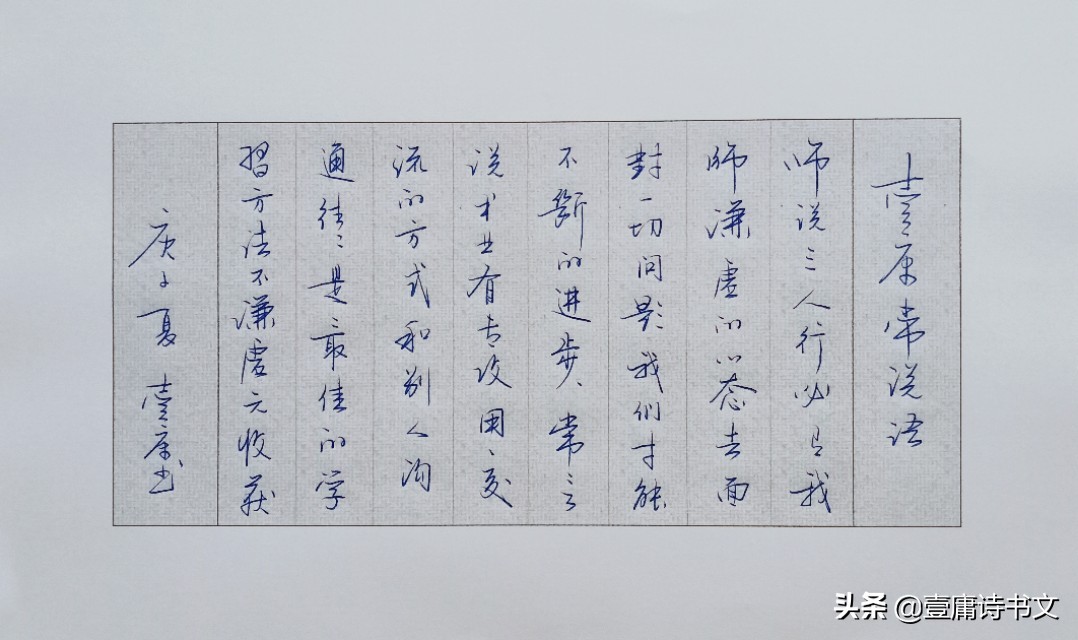 壹庸常说语
师说三人行必有我
师谦虚的心态去面
對一切问题我们才能
不斷的进步常言
说术业有专攻用交
流的方式和别人沟
通往往是最佳的学
習方法不谦虚无收获
庚子夏 壹庸书
头条 @壹庸诗书文